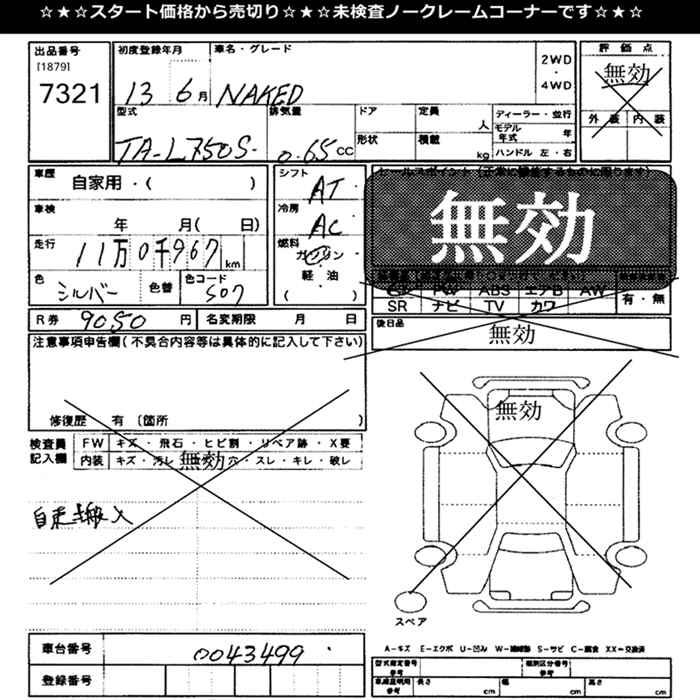 ☆★☆★スタート価格から売切り☆★☆★未検査ノークレームコーナーです☆★☆
出品番号 初度登録年月 車名・グレード 2WD 評価点
[1879] ・
7321 13 6月 NAKED 4WD 無効
型式 排気量 ドア 定員 人 ディーラー・並行 外装 内装
形状 積載 kg モデル年式 年
TA-L750S- 0.65 CC ハンドル 左・右
車歴 自家用・( ) シフト AT セールスポイント (正常に機能するものに限ります)
車検 年 月( 日) 冷房 AC 無効
走行 11万0千967 km 燃料 ガソリン・軽油
色 シルバー 色替 色コード S07 ( )
PW ABS エアB AW
SR ナビ TV カワ 有・無
R券 9050 円 名変期限 月 日 後日品 無効
注意事項申告欄(不具合内容等は具体的に記入して下さい)
修復歴 有 〔箇所 〕 無効
検査員記入欄 FW キズ・飛石・ヒビ割・リペア跡・X要
内装 キズ・汚レ 無効 穴・スレ・キレ・破レ
自走搬入
スペア
車台番号 0043499
A-キズ E-エクボ U-凹み W-補修跡 S-サビ C-腐食 XX-交換済
登録番号 型式指定番号 参考 類別区分番号 参考
車庫証明用 参考 長さ cm 幅 cm 高さ cm